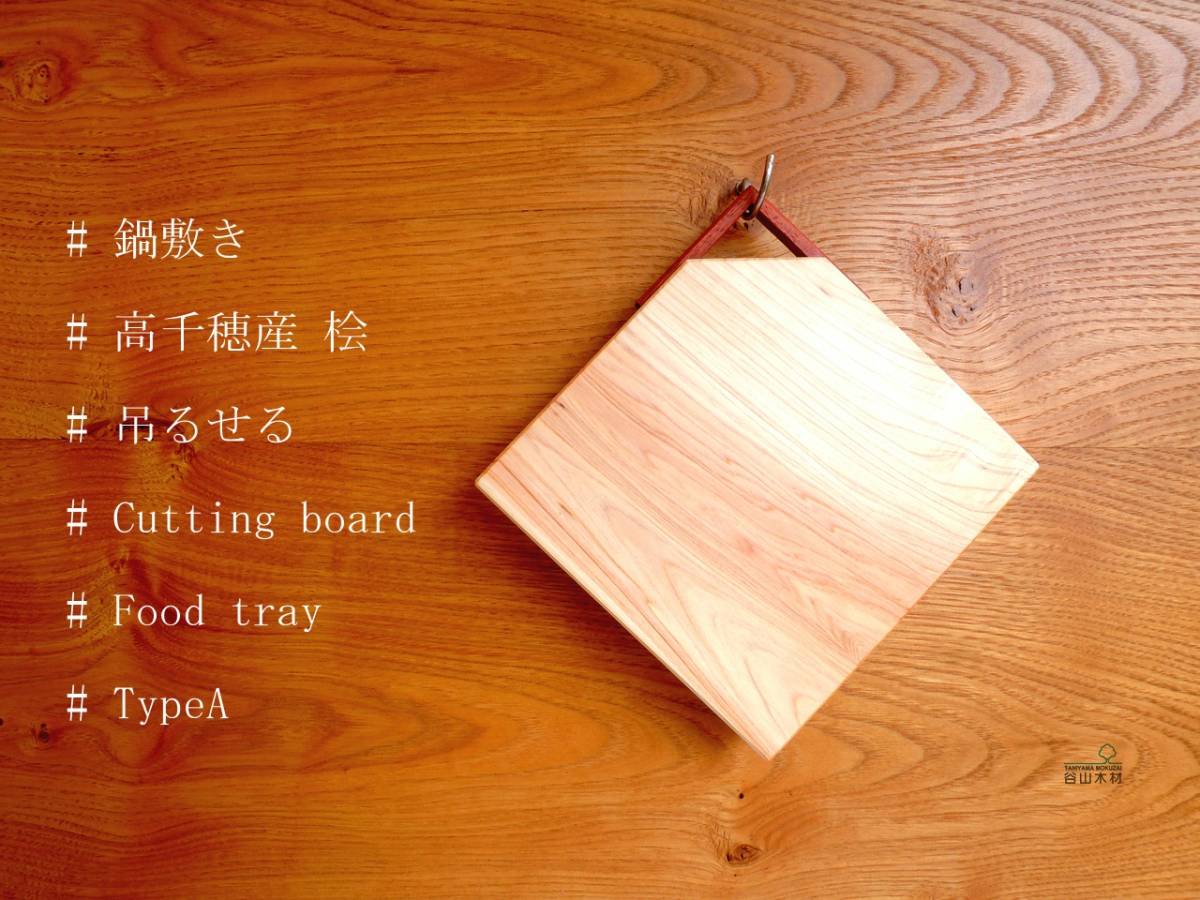 # 鍋敷き
# 高千穂産 桧
# 吊るせる
# Cutting board
# Food tray
# TypeA
TANIYAMA MOKUZAI
谷山木材